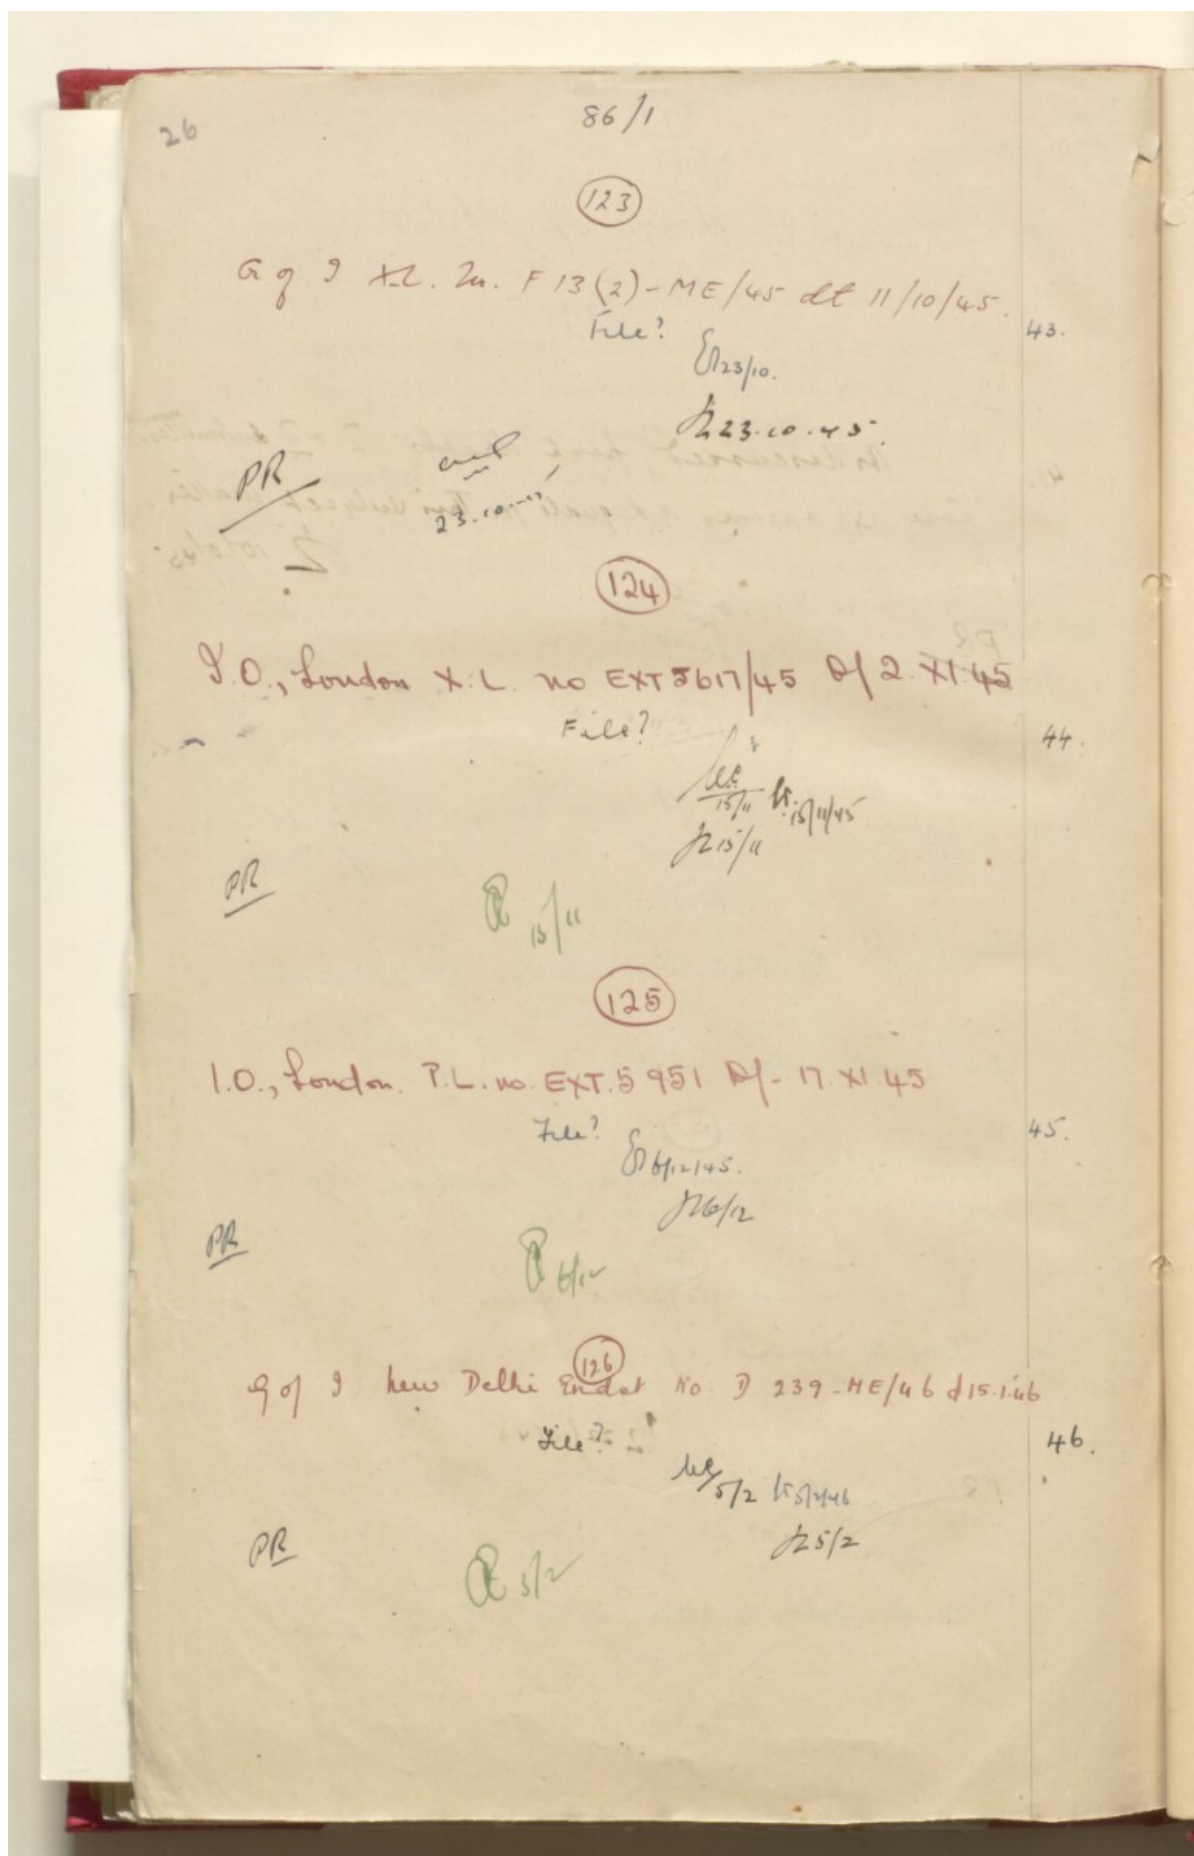 26
86/1
123
G of I XL. No. F 13(2)-ME/45 dt 11/10/45.
File?
43.
23/10.
23.10.45.
PR
23.10.
124
I.O., London X.L. no EXT 5617/45 D/ 2. XI 45
File?
44.
15/11
15/11/45
15/11
PR
15/11
125
I.O., London. P.L. no. EXT. 5951 D/- 17. XI. 45
File?
45.
6/12/45.
6/12
PR
6/12
126
G of I New Delhi Endst No. D 239-ME/46 d 15.1.46
File?
46.
5/2 5/2/46
5/2
PR